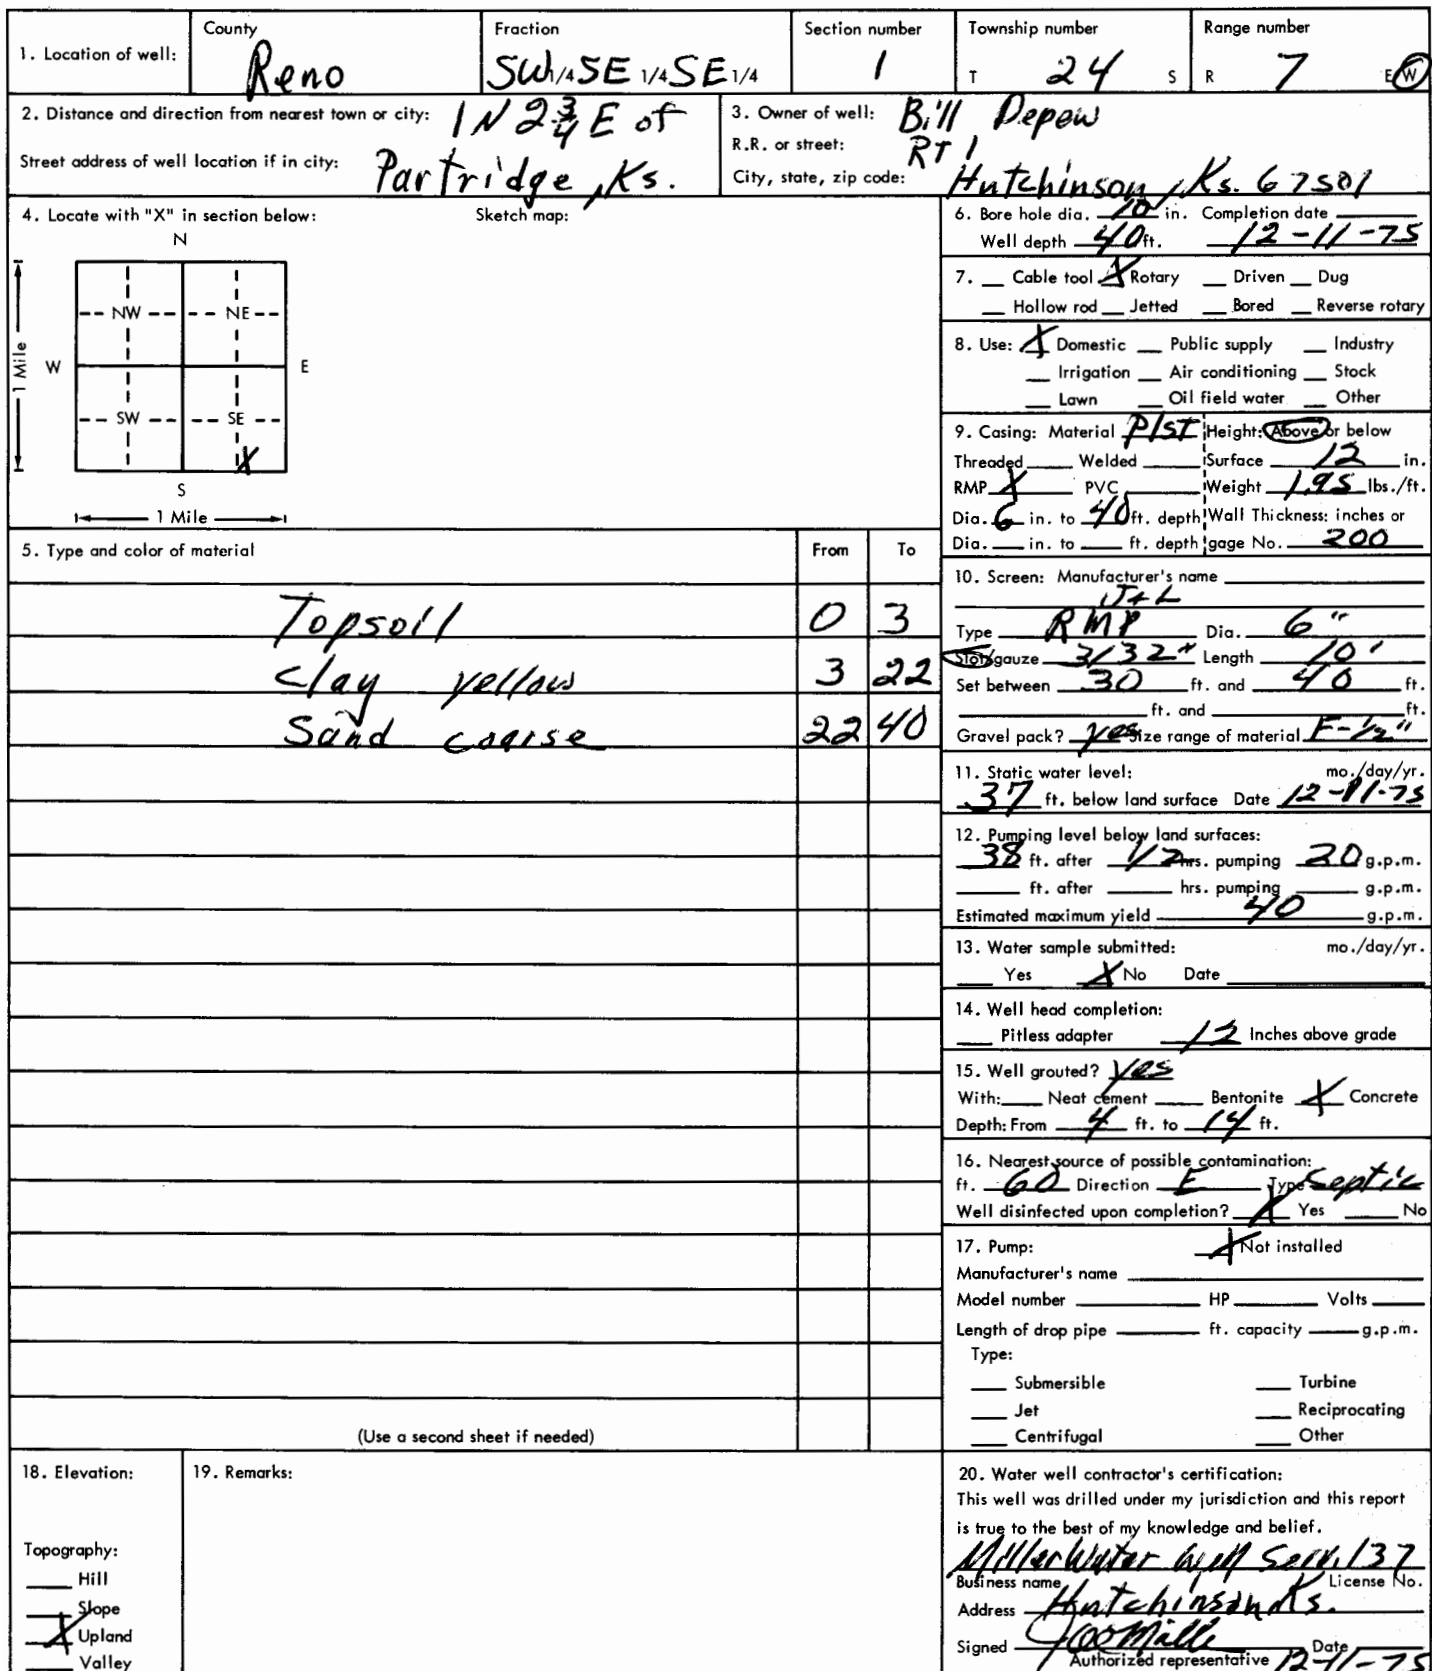 1. Location of well: County Reno Fraction SW 1/4 SE 1/4 SE 1/4 Section number 1 Township number T 24 S Range number R 7 E W
2. Distance and direction from nearest town or city: 1 N 2 3/4 E of
Street address of well location if in city: Partridge, Ks.
3. Owner of well: Bill Depew
R.R. or street: RT 1
City, state, zip code: Hutchinson, Ks. 67501
4. Locate with "X" in section below: Sketch map:
N
NW NE
1 Mile W E
SW SE
X
S
1 Mile
5. Type and color of material From To
Topsoil 0 3
Clay yellow 3 22
Sand coarse 22 40
(Use a second sheet if needed)
6. Bore hole dia. 10 in. Completion date
Well depth 40 ft. 12-11-75
7. __ Cable tool X Rotary __ Driven __ Dug
__ Hollow rod __ Jetted __ Bored __ Reverse rotary
8. Use: X Domestic __ Public supply __ Industry
__ Irrigation __ Air conditioning __ Stock
__ Lawn __ Oil field water __ Other
9. Casing: Material Plst Height: Above or below
Threaded __ Welded __ Surface 12 in.
RMP X PVC __ Weight 1.95 lbs./ft.
Dia. 6 in. to 40 ft. depth Wall Thickness: inches or
Dia. __ in. to __ ft. depth gage No. 200
10. Screen: Manufacturer's name
J+L
Type RMP Dia. 6"
Slot/gauze 3/32" Length 10'
Set between 30 ft. and 40 ft.
__ ft. and __ ft.
Gravel pack? yes Size range of material F-1/2"
11. Static water level: mo./day/yr.
37 ft. below land surface Date 12-11-75
12. Pumping level below land surfaces:
38 ft. after 1/2 hrs. pumping 20 g.p.m.
__ ft. after __ hrs. pumping __ g.p.m.
Estimated maximum yield 40 g.p.m.
13. Water sample submitted: mo./day/yr.
__ Yes X No Date
14. Well head completion:
__ Pitless adapter 12 Inches above grade
15. Well grouted? yes
With: __ Neat cement __ Bentonite X Concrete
Depth: From 4 ft. to 14 ft.
16. Nearest source of possible contamination:
ft. 60 Direction E Type Septic
Well disinfected upon completion? X Yes __ No
17. Pump: X Not installed
Manufacturer's name
Model number __ HP __ Volts __
Length of drop pipe __ ft. capacity __ g.p.m.
Type:
__ Submersible __ Turbine
__ Jet __ Reciprocating
__ Centrifugal __ Other
18. Elevation:
Topography:
__ Hill
__ Slope
X Upland
__ Valley
19. Remarks:
20. Water well contractor's certification:
This well was drilled under my jurisdiction and this report
is true to the best of my knowledge and belief.
Miller Water Well Serv. 137
Business name License No.
Address Hutchinson Ks.
Signed Date
Authorized representative 12-11-75